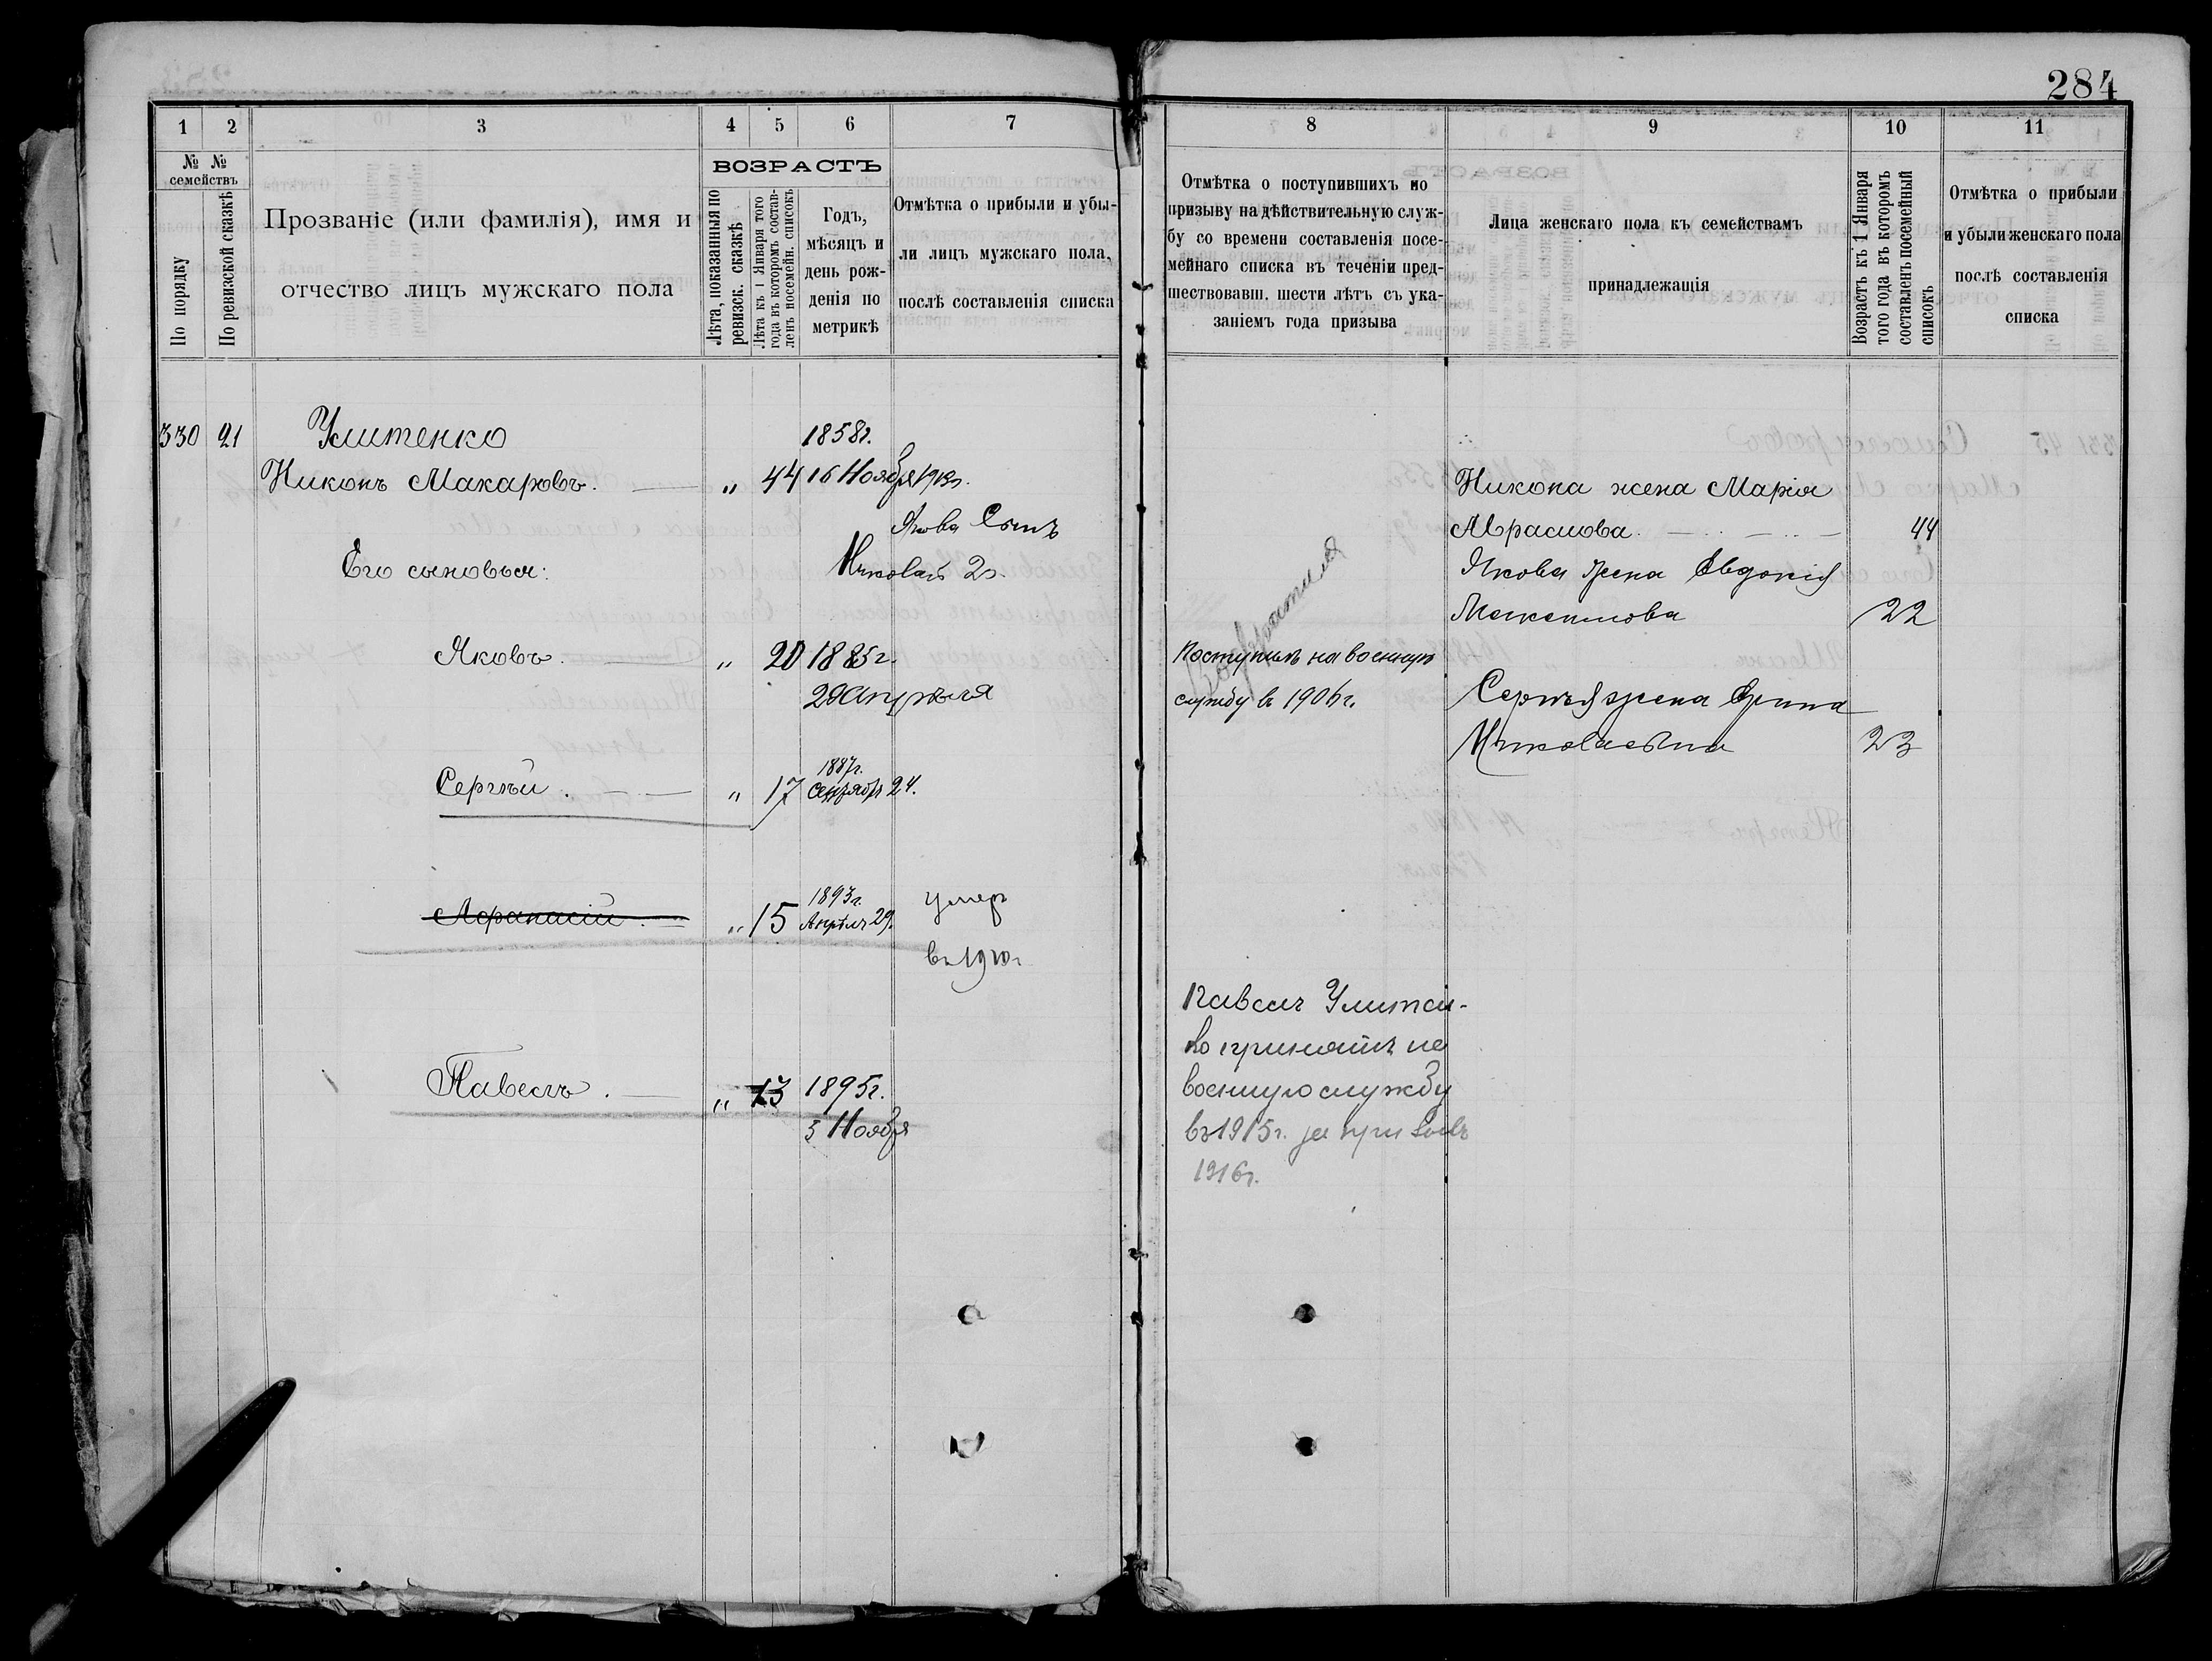 284
1
2
3
4
5
6
7
№ №
семействъ
По порядку
По ревизской сказкѣ
Прозваніе (или фамилія), имя и
отчество лицъ мужскаго пола
ВОЗРАСТЪ
Лѣта, показанныя по
ревизск. сказкѣ
Лѣта къ 1 Января того
года въ которомъ состав-
ленъ посемейн. списокъ
Годъ,
мѣсяцъ и
день рож-
денія по
метрикѣ
Отмѣтка о прибыли и убы-
ли лицъ мужскаго пола,
послѣ составленія списка
330 21 Улитенко 1858г.
Никонъ Макаровъ. „ 44 16 Ноября
Якова Сынъ
Его сыновья: Николай 2г.
Яковъ. „ 20 1885г.
Апрѣля
Сергѣй. „ 17 1887г.
Сентября 24.
Афанасій. „ 15 1893г. умеръ
Апрѣля 29.
въ 1910г
Павелъ. „ 13 1895г.
5 Ноября
8
9
10
11
Отмѣтка о поступившихъ по
призыву на дѣйствительную служ-
бу со времени составленія посе-
мейнаго списка въ теченіи пред-
шествовавш. шести лѣтъ съ ука-
заніемъ года призыва
Лица женскаго пола къ семействамъ
принадлежащія
Возрастъ къ 1 Января
того года въ которомъ
составленъ посемейный
списокъ
Отмѣтка о прибыли
и убыли женскаго пола
послѣ составленія
списка
Никона жена Марія
44
Якова жена Евдокія
22
Возвратился
Поступилъ на военную
службу въ 1906г.
Сергѣя жена
Николаевна 23
Павелъ Улитен-
ко принятъ на
военную службу
въ 1915г. за призывъ
1916г.